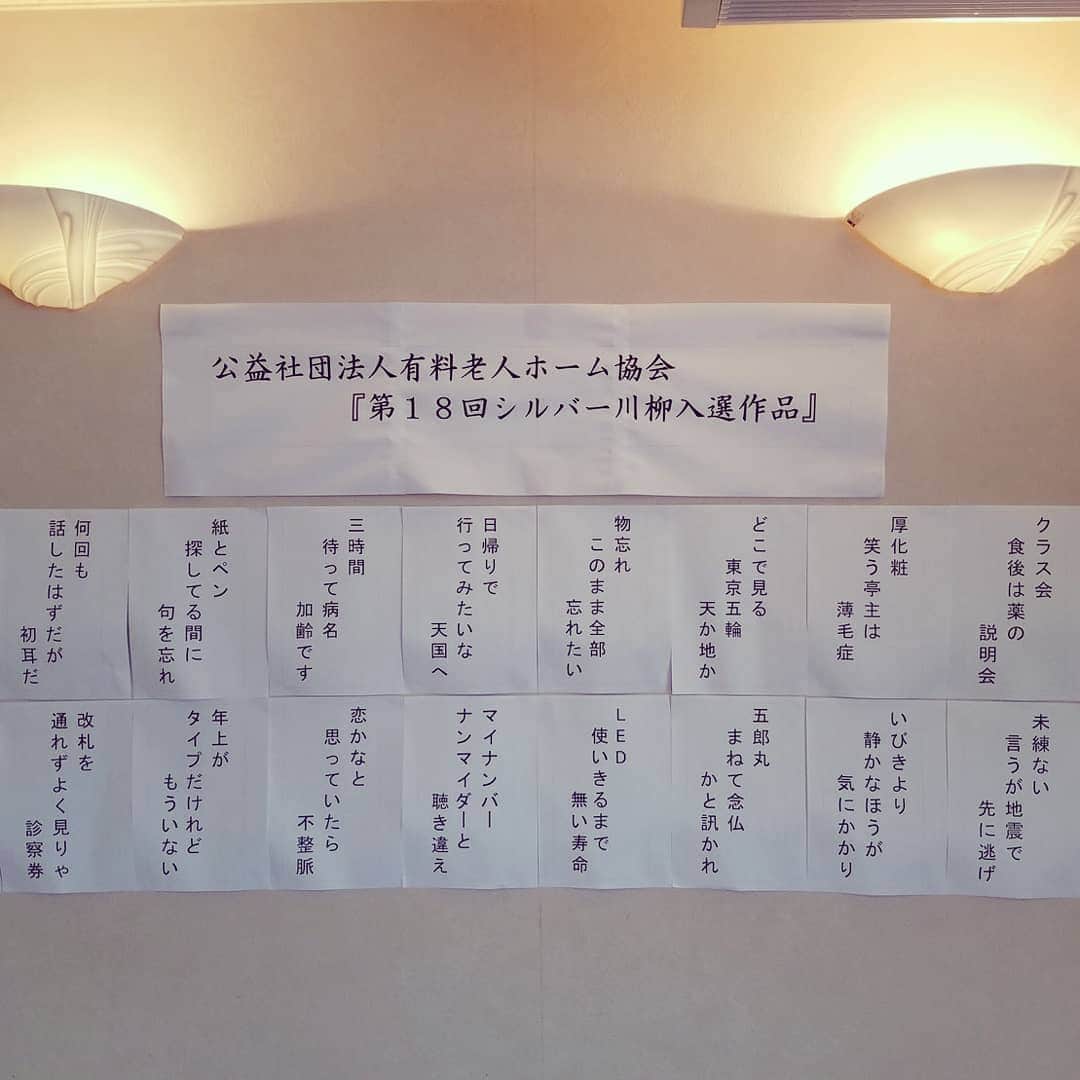 公益社団法人有料老人ホーム協会
『第１８回シルバー川柳入選作品』
クラス会
食後は薬の
説明会
厚化粧
笑う亭主は
薄毛症
どこで見る
東京五輪
天か地か
物忘れ
このまま全部
忘れたい
日帰りで
行ってみたいな
天国へ
三時間
待って病名
加齢です
紙とペン
探してる間に
句を忘れ
何回も
話したはずだが
初耳だ
未練ない
言うが地震で
先に逃げ
いびきより
静かなほうが
気にかかり
五郎丸
まねて念仏
かと訊かれ
ＬＥＤ
使いきるまで
無い寿命
マイナンバー
ナンマイダーと
聴き違え
恋かなと
思っていたら
不整脈
年上が
タイプだけれど
もういない
改札を
通れずよく見りゃ
診察券